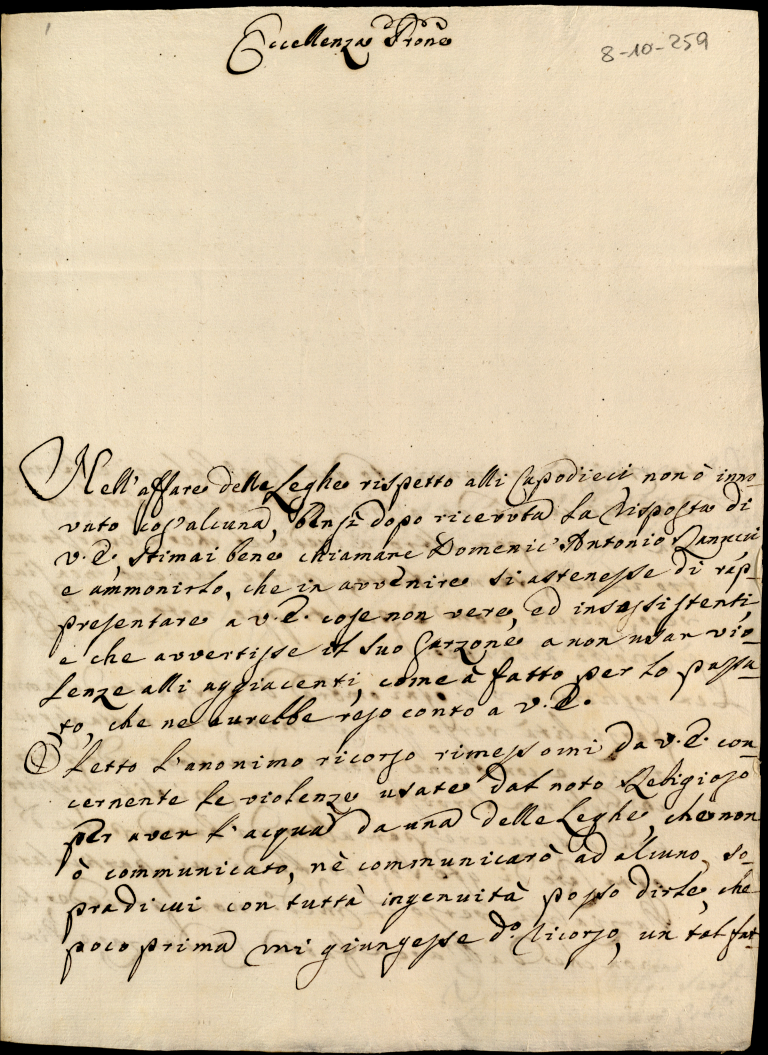 Eccellenza Prone
8-10-259
Nell'affare delle Leghe rispetto alli Capodieci non ò inno-
vato cos'alcuna, bensì dopo ricevuta la risposta di
V. E. stimai bene chiamare Domenic'Antonio Ranucci
e ammonirlo, che in avvenire si astenesse di rap-
presentare a V. E. cose non vere, ed insussistenti,
e che avvertisse il suo Garzone a non usar vio-
lenze alli aggiacenti, come à fatto per lo passa-
to, che ne averebbe reso conto a V. E.
Ò letto l'anonimo ricorso rimessomi da V. E. con-
cernente le violenze usate dal noto Religioso
per aver l'acqua da una delle Leghe, che non
ò communicato, nè communicarò ad alcuno, so-
pradicui con tuttà ingenuità posso dirle, che
poco prima mi giungesse do. ricorso, un tal fat-